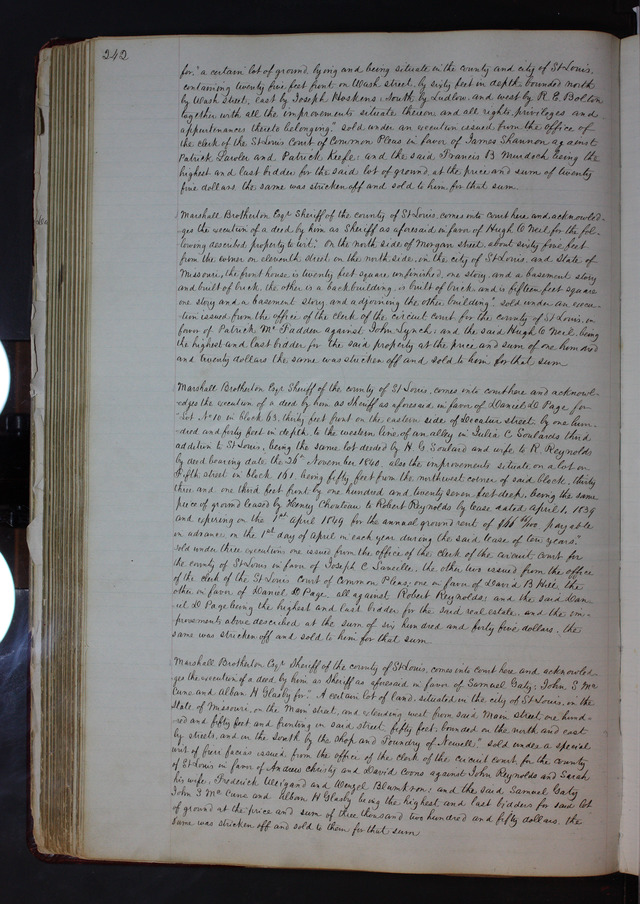 242
for "a certain lot of ground lying and being situate in the county and city of St Louis,
containing twenty five feet front on Wash street, by sixty feet in depth bounded north
by Wash street, east by Joseph Hoskens, South by Ludlow, and west by R. E. Bolton
together with all the improvements situate thereon and all rights, privileges and
appertenances thereto belonging," sold under an execution issued from the office of
the clerk of the St Louis Court of Common Pleas in favor of James Shannon against
Patrick Lawler and Patrick Keefe: and the said Francis B. Murdoch being the
highest and last bidder for the said lot of ground, at the price and sum of twenty
five dollars the same was stricken off and sold to him for that sum.
Marshall Brotherton Esqr Sheriff of the county of St Louis, comes into court here and acknowled-
ges the execution of a deed by him as Sheriff as aforesaid in favor of Hugh O Neil for the fol-
lowing described property to wit: "On the north side of Morgan street, about sixty five feet
from the corner on eleventh street on the north side, in the city of St Louis, and State of
Missouri, the front house is twenty feet square, unfinished, one story, and a basement story
and built of brick, the other is a back building, is built of brick, and is fifteen feet square
one story and a basement story and adjoining the other building" sold under an execu-
tion issued from the office of the clerk of the circuit court for the county of St Louis, in
favor of Patrick Mc Fadden against John Lynch: and the said Hugh O Neil, being
the highest and last bidder for the said property at the price and sum of one hundred
and twenty dollars the same was stricken off and sold to him for that sum
Marshall Brotherton Esqr Sheriff of the county of St Louis, comes into court here and acknowl-
edges the execution of a deed by him as Sheriff as aforesaid in favor of Daniel D Page for
"Lot No 10 in block 63, thirty feet front on the eastern side of Decatur street by one hun-
dred and forty feet in depth, to the western line of an alley in Julia C Soulards third
addition to St Louis, being the same lot deeded by H G Soulard and wife to R. Reynolds
by deed bearing date the 26th November 1840, also the improvements situate on a lot on
Fifth street in block 161, being fifty feet from the northwest corner of said block, thirty
three and one third feet front by one hundred and twenty seven feet deep, being the same
piece of ground leased by Henry Chouteau to Robert Reynolds by lease dated April 1, 1839
and expiring on the 1st April 1849 for the annual ground rent of payable
in advance on the 1st day of April in each year during the said lease of ten years."
sold under three executions one issued from the office of the clerk of the circuit court for
the county of St Louis in favor of Joseph C the other two issued from the office
of the clerk of the St Louis Court of Common Pleas; one in favor of David B Hill, the
other in favor of Daniel D Page all against Robert Reynolds: and the said Dan-
iel D Page being the highest and last bidder for the said real estate, and the im-
provements above described at the sum of six hundred and forty five dollars, the
same was stricken off and sold to him for that sum
Marshall Brotherton Esqr Sheriff of the county of St Louis, comes into court here and acknowled
ges the execution of a deed by him as Sheriff as aforesaid in favor of Samuel Gaty, John S Mc
Cune and Alban H Glasby for "A certain lot of land, situated in the city of St Louis, in the
State of Missouri, on the Main street, and extending west from said Main street, one hund-
red and fifty feet and fronting on said street, fifty feet; bounded on the north and east
by streets, and on the South by the shop and Foundry of Newell" sold under a special
writ of fieri facias issued from the office of the clerk of the circuit court for the county
of St Louis in favor of Andrew Christy and David Coons against John Reynolds and Sarah
his wife, Frederick Weigand and Wenzel and the said Samuel Gaty
John S Mc Cune and Alban H Glasby being the highest and last bidders for said lot
of ground at the price and sum of three thousand two hundred and fifty dollars, the
same was stricken off and sold to them for that sum